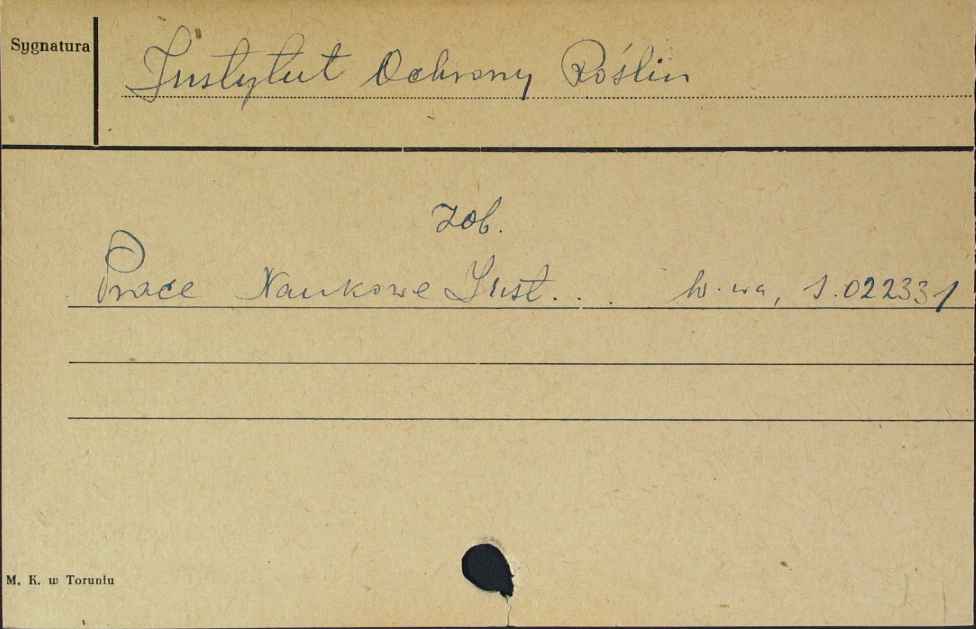 Sygnatura
Instytut Ochrony Roślin
zob.
Prace Naukowe Inst... W-wa, S.022331
M. K. w Toruniu